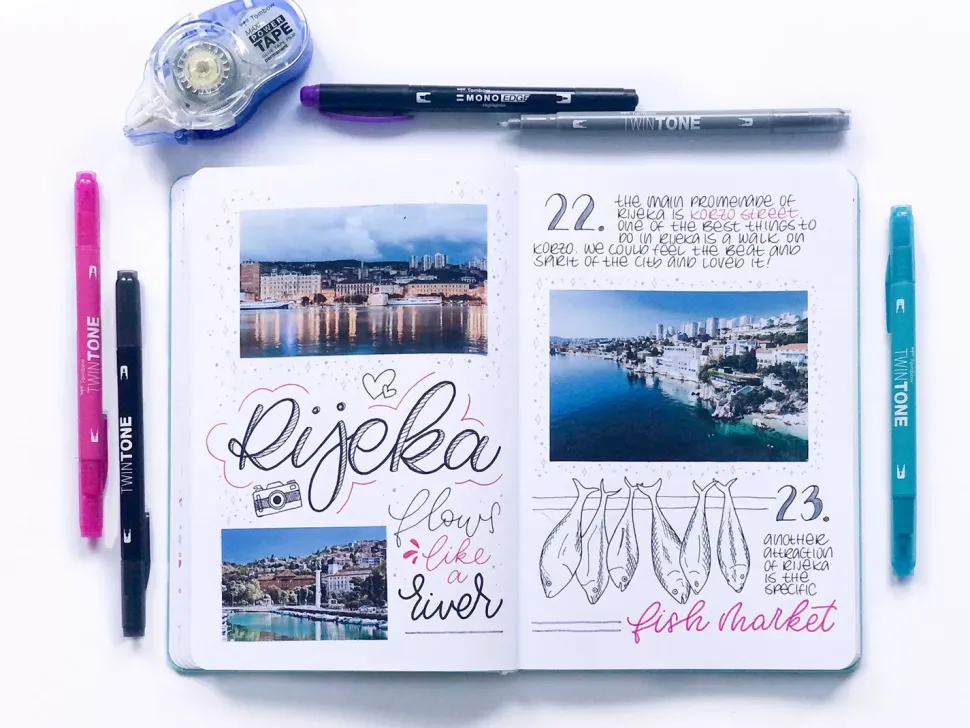 Tombow
MAX
POWER
TAPE
Tombow
MONO EDGE
Highlighter
TWINTONE
Tombow
TWINTONE
TWINTONE
Tombow
TWINTONE
Rijeka
flows
like
a
river
22.
the main promenade of
Rijeka is Korzo street.
one of the best things to
do in Rijeka is a walk on
Korzo. we could feel the beat and
spirit of the city and loved it!
23.
another
attraction
of Rijeka
is the
specific
fish market